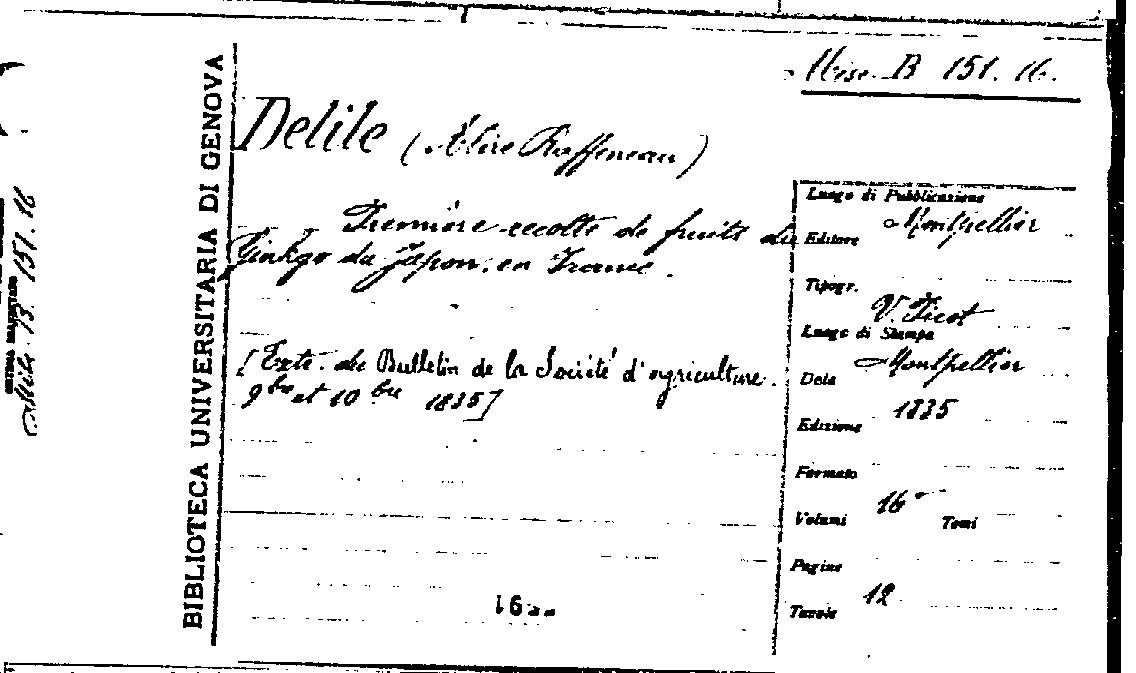 Misc. B 151. 16.
BIBLIOTECA UNIVERSITARIA DI GENOVA
Delile (Alire Raffeneau)
Première recolte de fruits du
Ginkgo du Japon, en France.
[Extr. du Bulletin de la Société d'agriculture.
9bre et 10bre 1835]
16
Luogo di Pubblicazione
Montpellier
Editore
Tipogr.
V. Picot
Luogo di Stampa
Montpellier
Data
1835
Edizione
Formato
16°
Volumi Tomi
Pagine
12
Tavole
151. 16